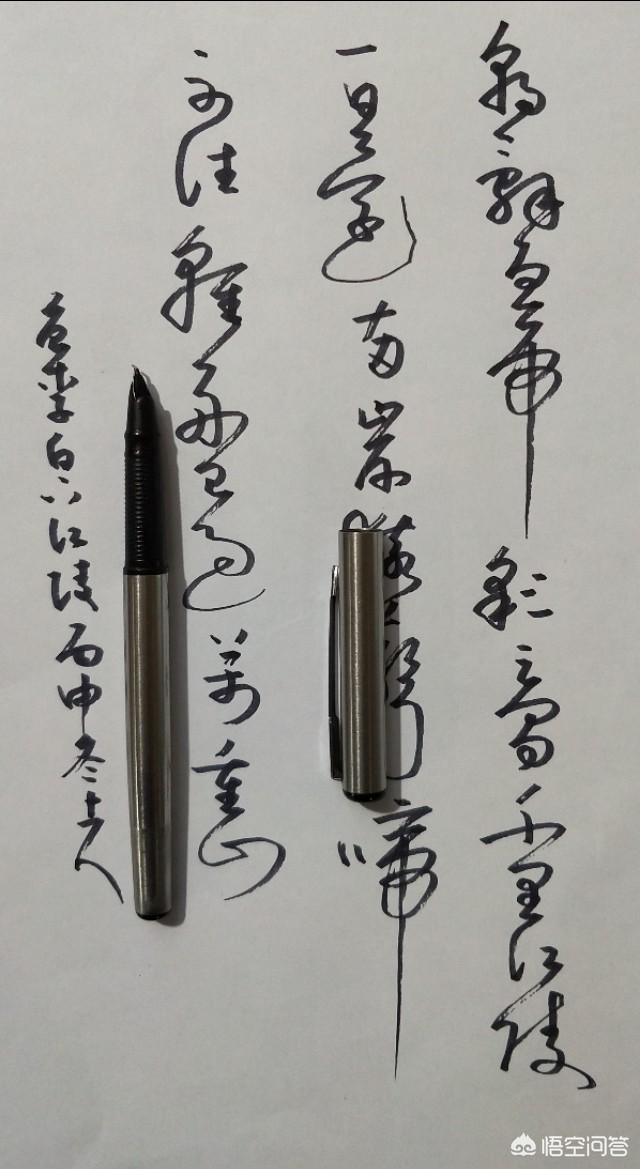 朝辞白帝彩云间千里江陵
一日还两岸猿声啼
不住轻舟已过万重山
李白下江陵丙申冬
悟空问答